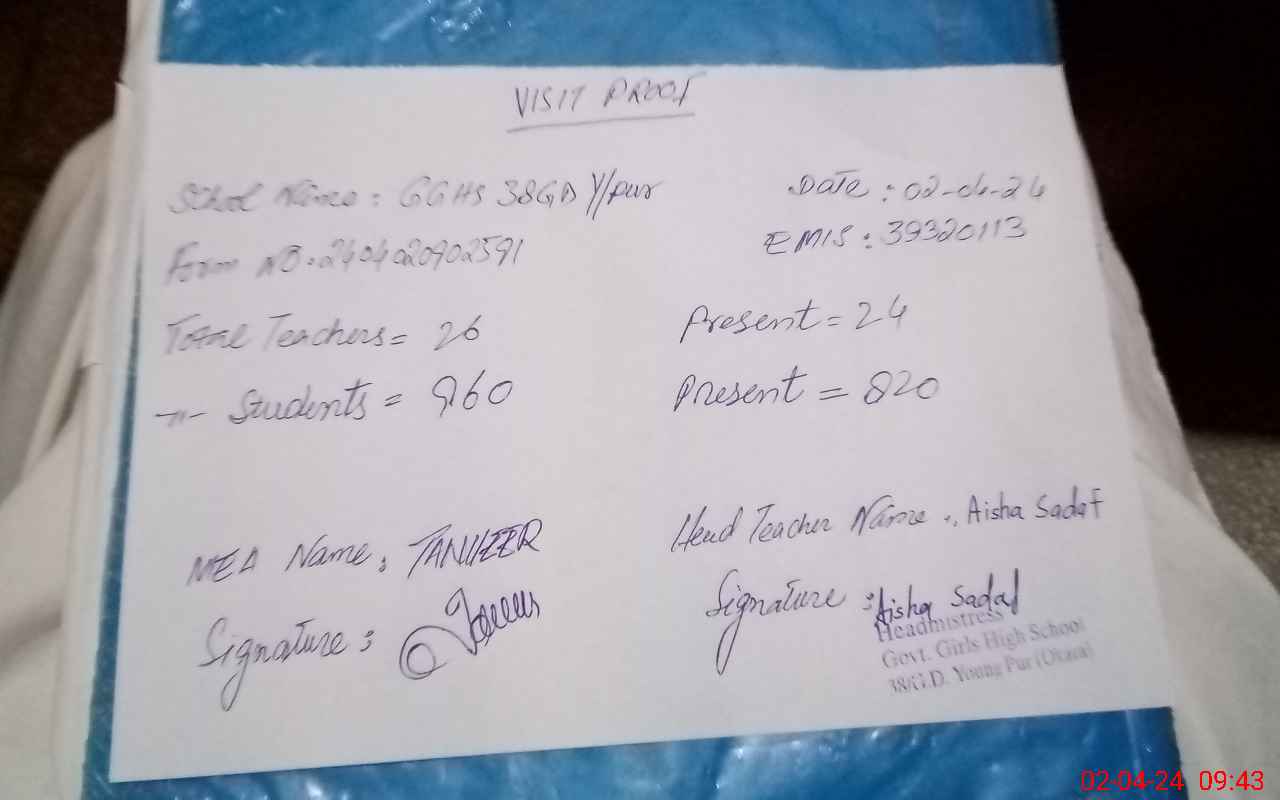 VISIT PROOF
School Name : GGHS 38GD Y/pur
Date : 02-04-24
Form NO. 240402902591
EMIS : 39320113
Total Teachers = 26
Present = 24
-"- Students = 960
Present = 820
MEA Name :
Head Teacher Name : Aisha Sadaf
Signature :
Signature : Aisha Sadaf
Headmistress
Govt. Girls High School
38/G.D. Young Pur (Okara)
02-04-24 09:43